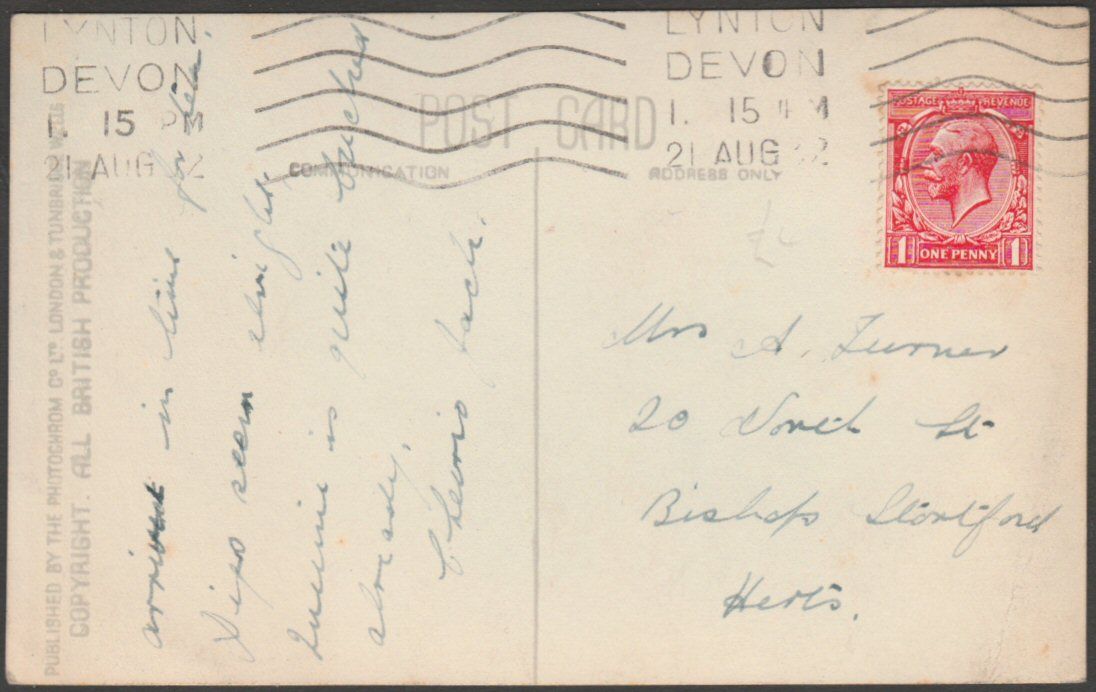 LYNTON.
DEVON
1. 15 PM
21 AUG 32
LYNTON
DEVON
1. 15 PM
21 AUG 32
POST CARD
COMMUNICATION
ADDRESS ONLY
POSTAGE REVENUE
1 ONE PENNY 1
PUBLISHED BY THE PHOTOCHROM CO LTD. LONDON & TUNBRIDGE WELLS
COPYRIGHT. ALL BRITISH PRODUCTION
arrived in time for tea.
Digs seem alright.
is quite
already.
Cheerio Jack.
Mrs A. Turner
20 North St
Bishops Stortford
Herts.